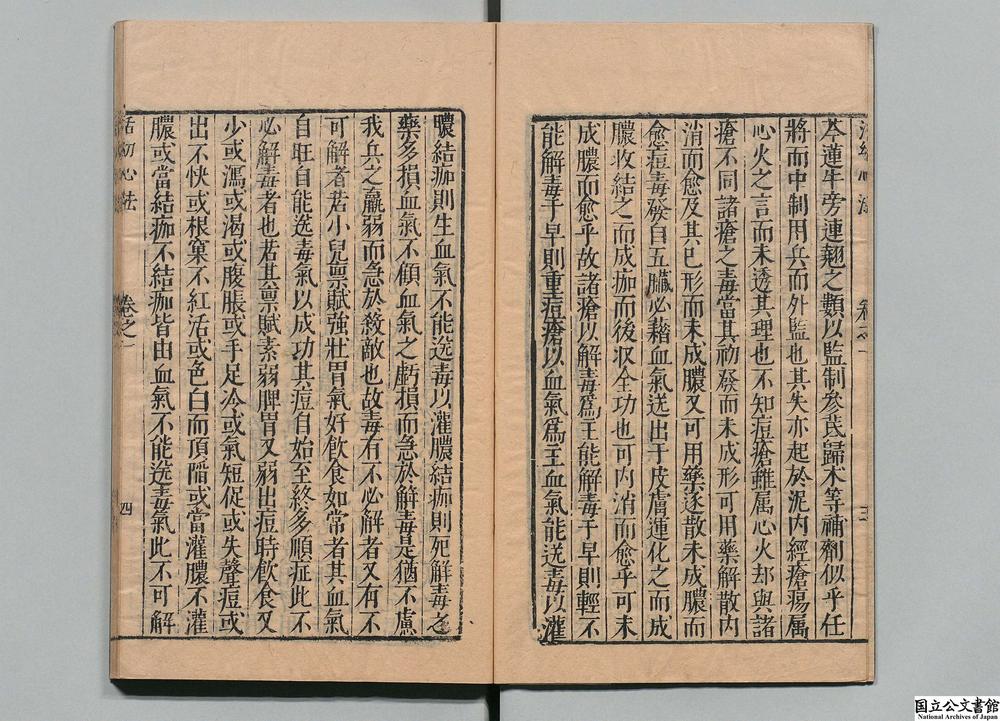 活幼心法 卷之一 三
芩蓮牛旁連翹之類以監制參芪歸朮等補劑似乎任
將而中制用兵而外監也其失亦起於泥内經瘡瘍属
心火之言而未透其理也不知痘瘡雖属心火却與諸
瘡不同諸瘡之毒當其初發而未成形可用藥解散内
消而愈及其已形而未成膿又可用藥逐散未成膿而
愈痘毒發自五臟必藉血氣送出于皮膚運化之而成
膿收結之而成痂而後収全功也可内消而愈乎可未
成膿而愈乎故諸瘡以解毒爲主能解毒于早則輕不
能解毒于早則重痘瘡以血氣爲主血氣能送毒以灌
膿結痂則生血氣不能送毒以灌膿結痂則死解毒之
藥多損血氣不傾血氣之虧損而急於解毒是猶不慮
我兵之羸弱而急於殺敵也故毒有不必解者又有不
可解者若小兒禀賦強壯胃氣好飲食如常者其血氣
自旺自能送毒氣以成功其痘自始至終多順症此不
必解毒者也若其禀賦素弱脾胃又弱出痘時飲食又
少或瀉或渴或腹脹或手足冷或氣短促或失聲痘或
出不快或根窠不紅活或色白而頂陷或當灌膿不灌
膿或當結痂不結痂皆由血氣不能送毒氣此不可解
活幼心法 卷之一 四
国立公文書館
National Archives of Japan